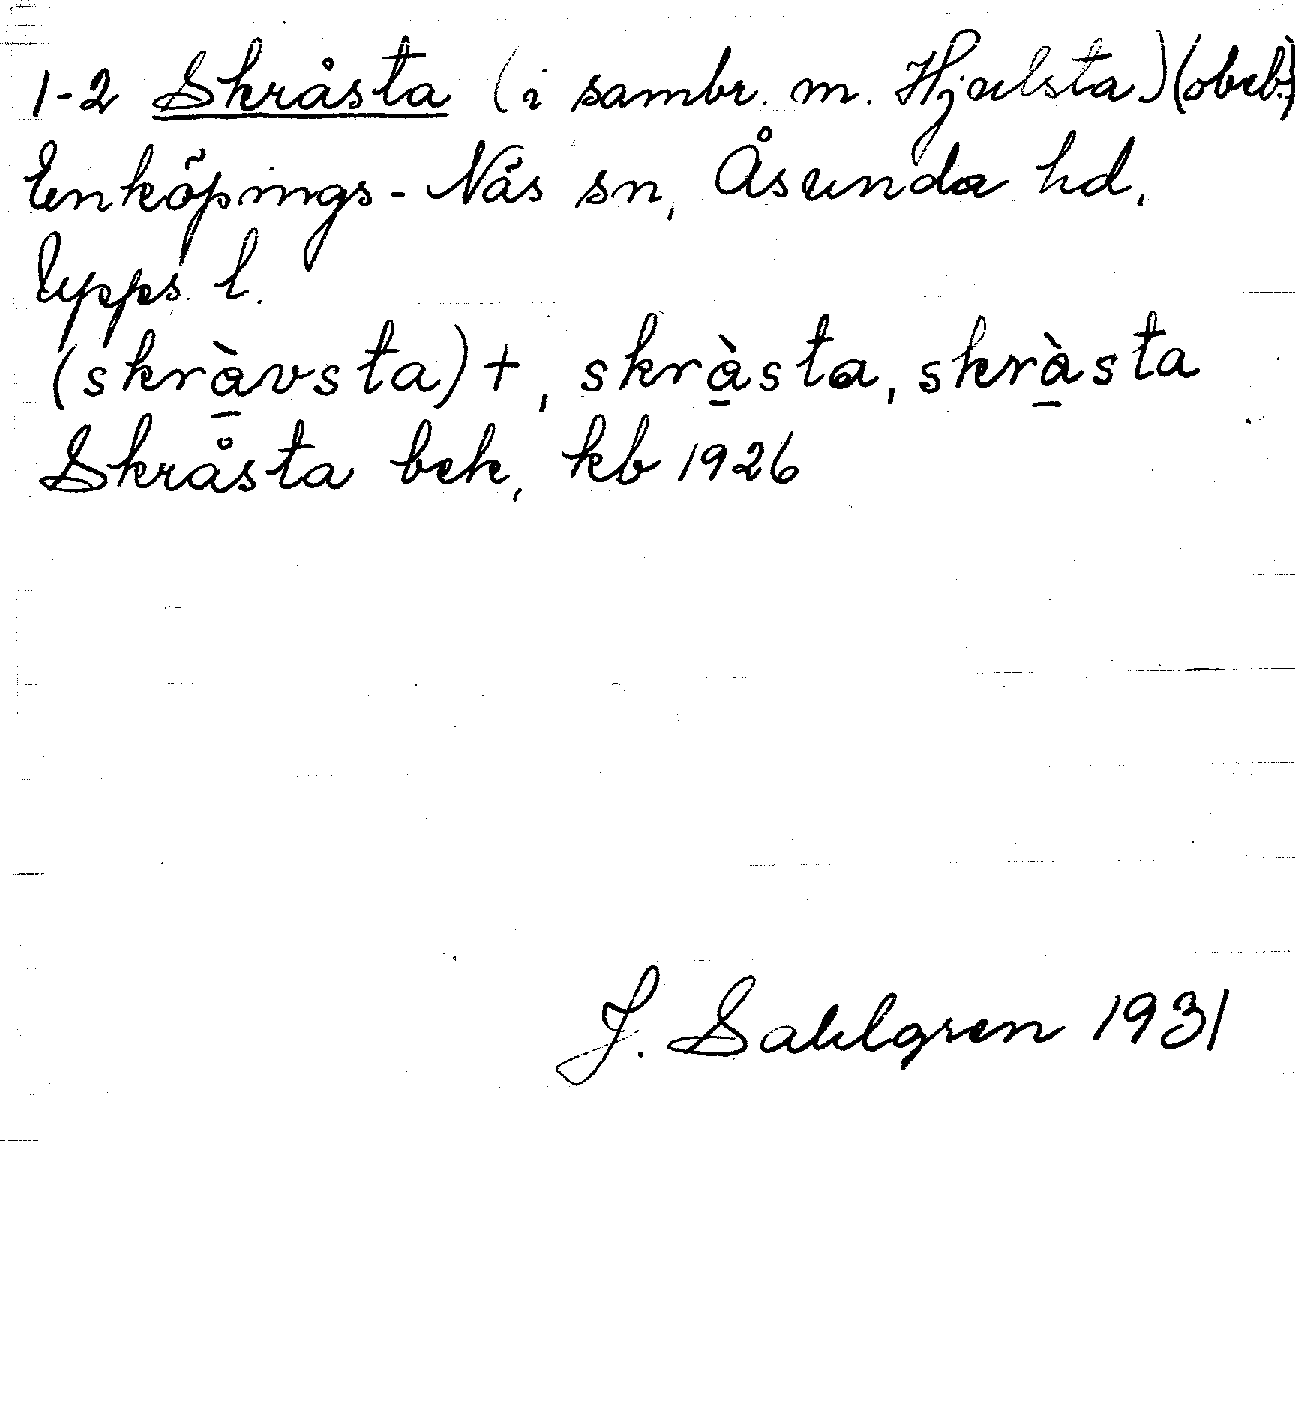 1-2 Skråsta (i sambr. m. Hjälsta) (obeb.)
Enköpings-Näs sn, Åsunda hd.
Upps. l.
(skrà̱vsta)+, skrà̱sta, skrà̱sta
Skråsta bek, kb 1926
J. Sahlgren 1931